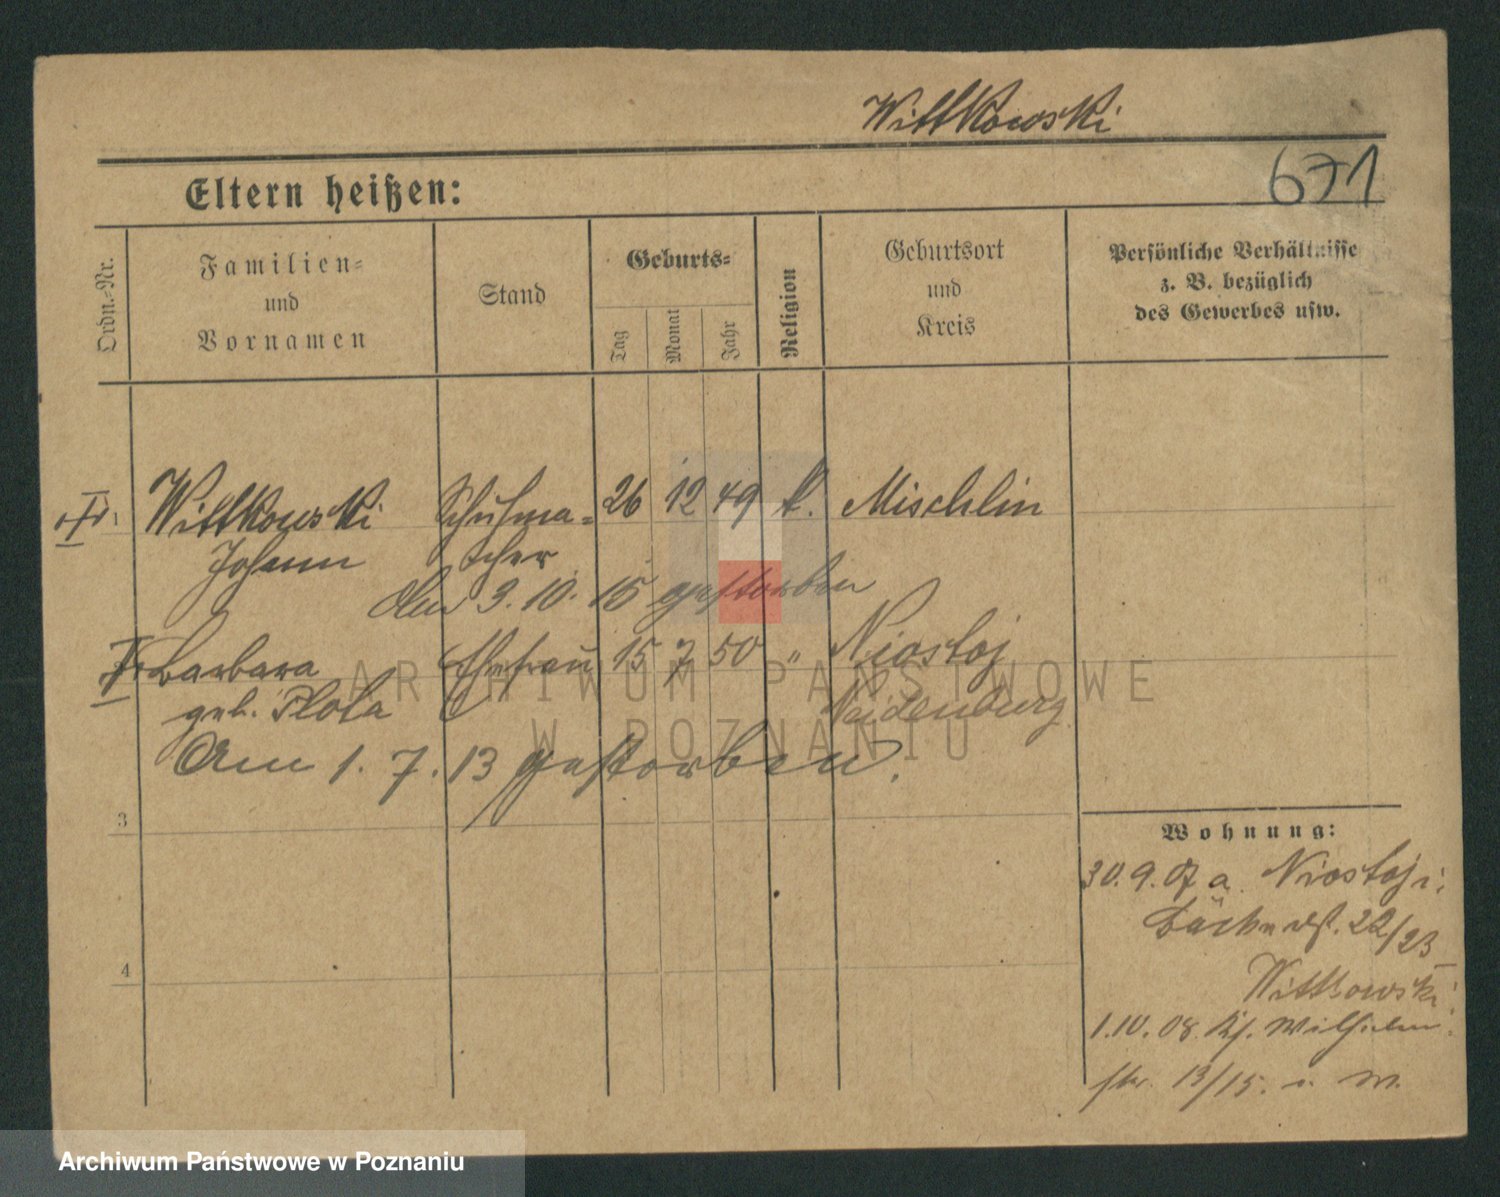 Wittkowski
671
Eltern heißen:
Ordn.-Nr.
Familien-
und
Vornamen
Stand
Geburts-
Tag
Monat
Jahr
Religion
Geburtsort
und
Kreis
Persönliche Verhältnisse
z. B. bezüglich
des Gewerbes usw.
Wittkowski Schuhma- 26 12 49 k. Mischlin
Johann cher
den 9. 10. 15 gestorben
Barbara Ehefrau 15 7 50 " Niostoj
geb. Plota Neidenburg
Am 1. 7. 13 gestorben.
3
4
Wohnung:
30.9.07 a. Niostoj i.
Bäckerst. 22/23
Wittkowski
1.10.08 Wilhelm
str. 13/15. i. W.
ARCHIWUM PAŃSTWOWE
W POZNANIU
Archiwum Państwowe w Poznaniu